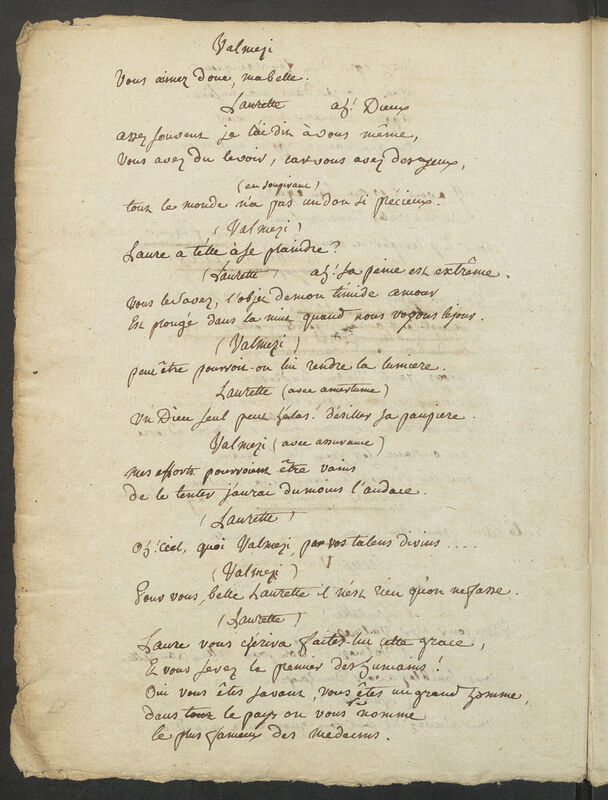 Valmezi
Vous aimez donc, ma belle.
Laurette ah! Dieux
assez souvent je l'ai dit à vous même,
Vous avez du le voir, car vous avez des yeux,
(en soupirant)
tout le monde n'a pas un don si précieux.
(Valmezi)
Laure a t'elle à se plaindre?
(Laurette) ah! sa peine est extrême.
Vous le savez, l'objet de mon timide amour
Est plongé dans la nuit quand nous voyons le jour.
(Valmezi)
peut être pourroit-on lui rendre la lumiere.
Laurette (avec amertume)
Un Dieu seul peut hélas! désiller sa paupiere.
Valmezi (avec assurance)
Mes efforts pourroient être vains
de le tenter j'aurai du moins l'audace.
(Laurette)
Oh! ciel, quoi Valmezi, par vos talens divins .....
(Valmezi)
Pour vous, belle Laurette il n'est rien qu'on ne fasse.
(Laurette)
Laure vous chérira faites-lui cette grace,
Et vous serez le premier des humains!
Oui vous êtes savant, vous êtes un grand homme,
dans tout le pays on vous nomme
le plus fameux des medecins.